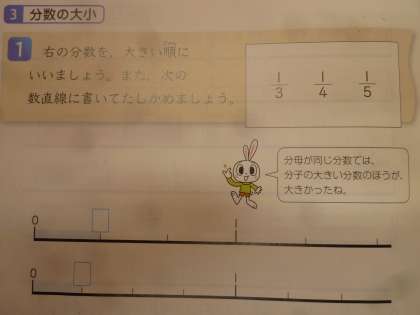 3 分数の大小
1 右の分数を、大きい順に
いいましょう。また、次の
数直線に書いてたしかめましょう。
1/3 1/4 1/5
分母が同じ分数では、
分子の大きい分数のほうが、
大きかったね。
0 1
0 1